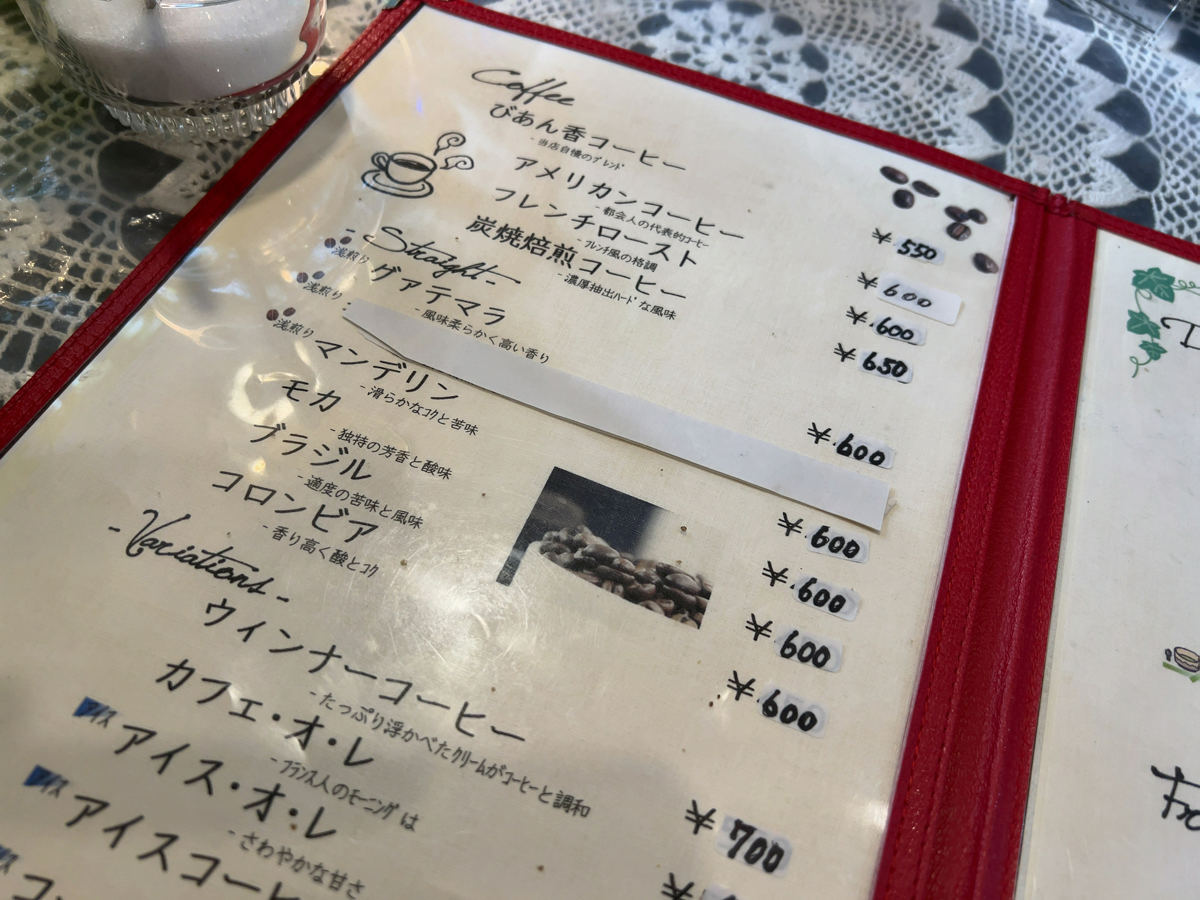 Coffee
びあん香コーヒー
-当店自慢のブレンド
¥550
アメリカンコーヒー
-都会人の代表的コーヒー
¥600
フレンチロースト
-フレンチ風の格調
¥600
炭焼焙煎コーヒー
-濃厚抽出ハードな風味
¥650
-Straight-
浅煎り
グァテマラ
-風味柔らかく高い香り
¥600
浅煎り
浅煎り
マンデリン
-滑らかなコクと苦味
¥600
モカ
-独特の芳香と酸味
¥600
ブラジル
-適度の苦味と風味
¥600
コロンビア
-香り高く酸とコク
¥600
-Variations-
ウィンナーコーヒー
-たっぷり浮かべたクリームがコーヒーと調和
¥700
カフェ・オ・レ
-フランス人のモーニングは
¥
アイス
アイス・オ・レ
-さわやかな甘さ
アイス
アイスコーヒ